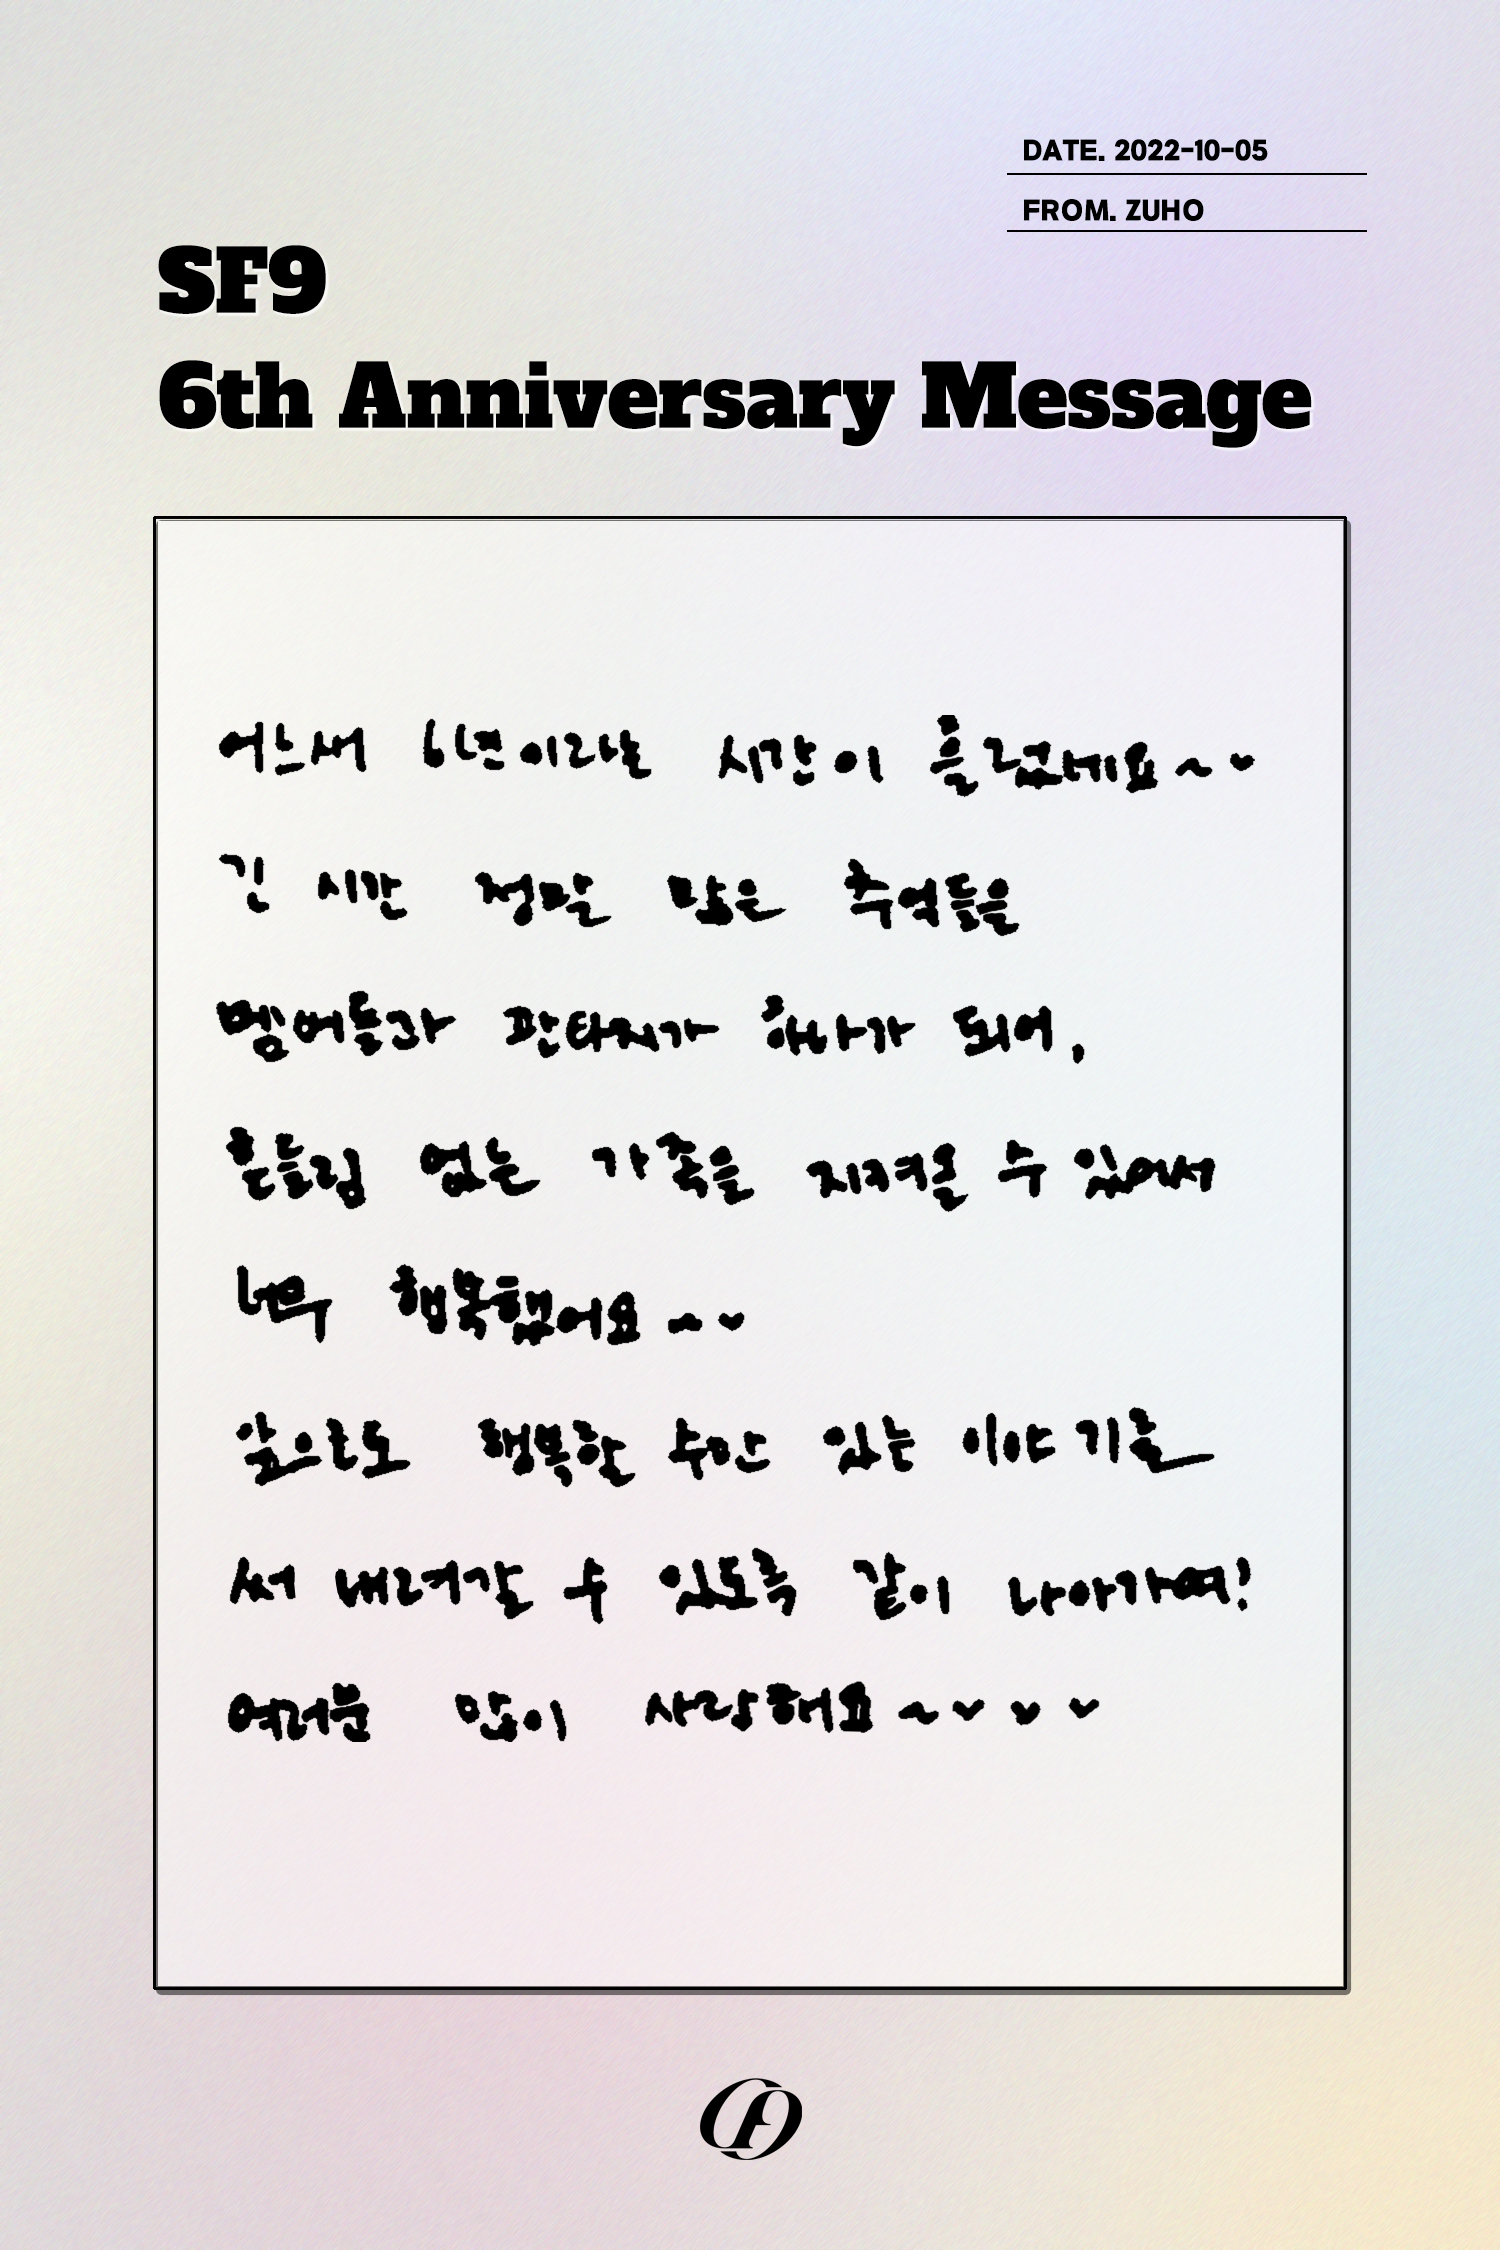 DATE. 2022-10-05
FROM. ZUHO
SF9
6th Anniversary Message
어느새 6년이라는 시간이 흘렀네요~♥
긴 시간 정말 많은 추억들을
멤버들과 판타지가 하나가 되어,
흔들림 없는 가족을 지켜올 수 있어서
너무 행복했어요~♥
앞으로도 행복할 수만 있는 이야기를
써 내려갈 수 있도록 같이 나아가여!
여러분 많이 사랑해요~♥♥♥